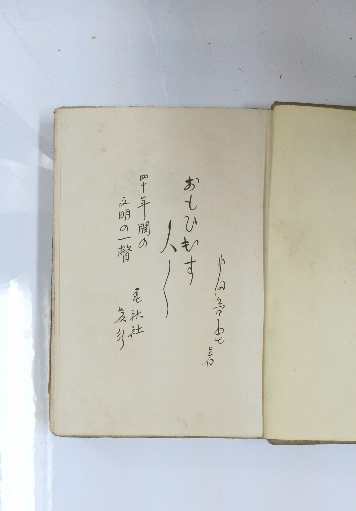 内田魯庵著
おもひ出す
人〱
四十年間の
文明の一瞥
春秋社
發行